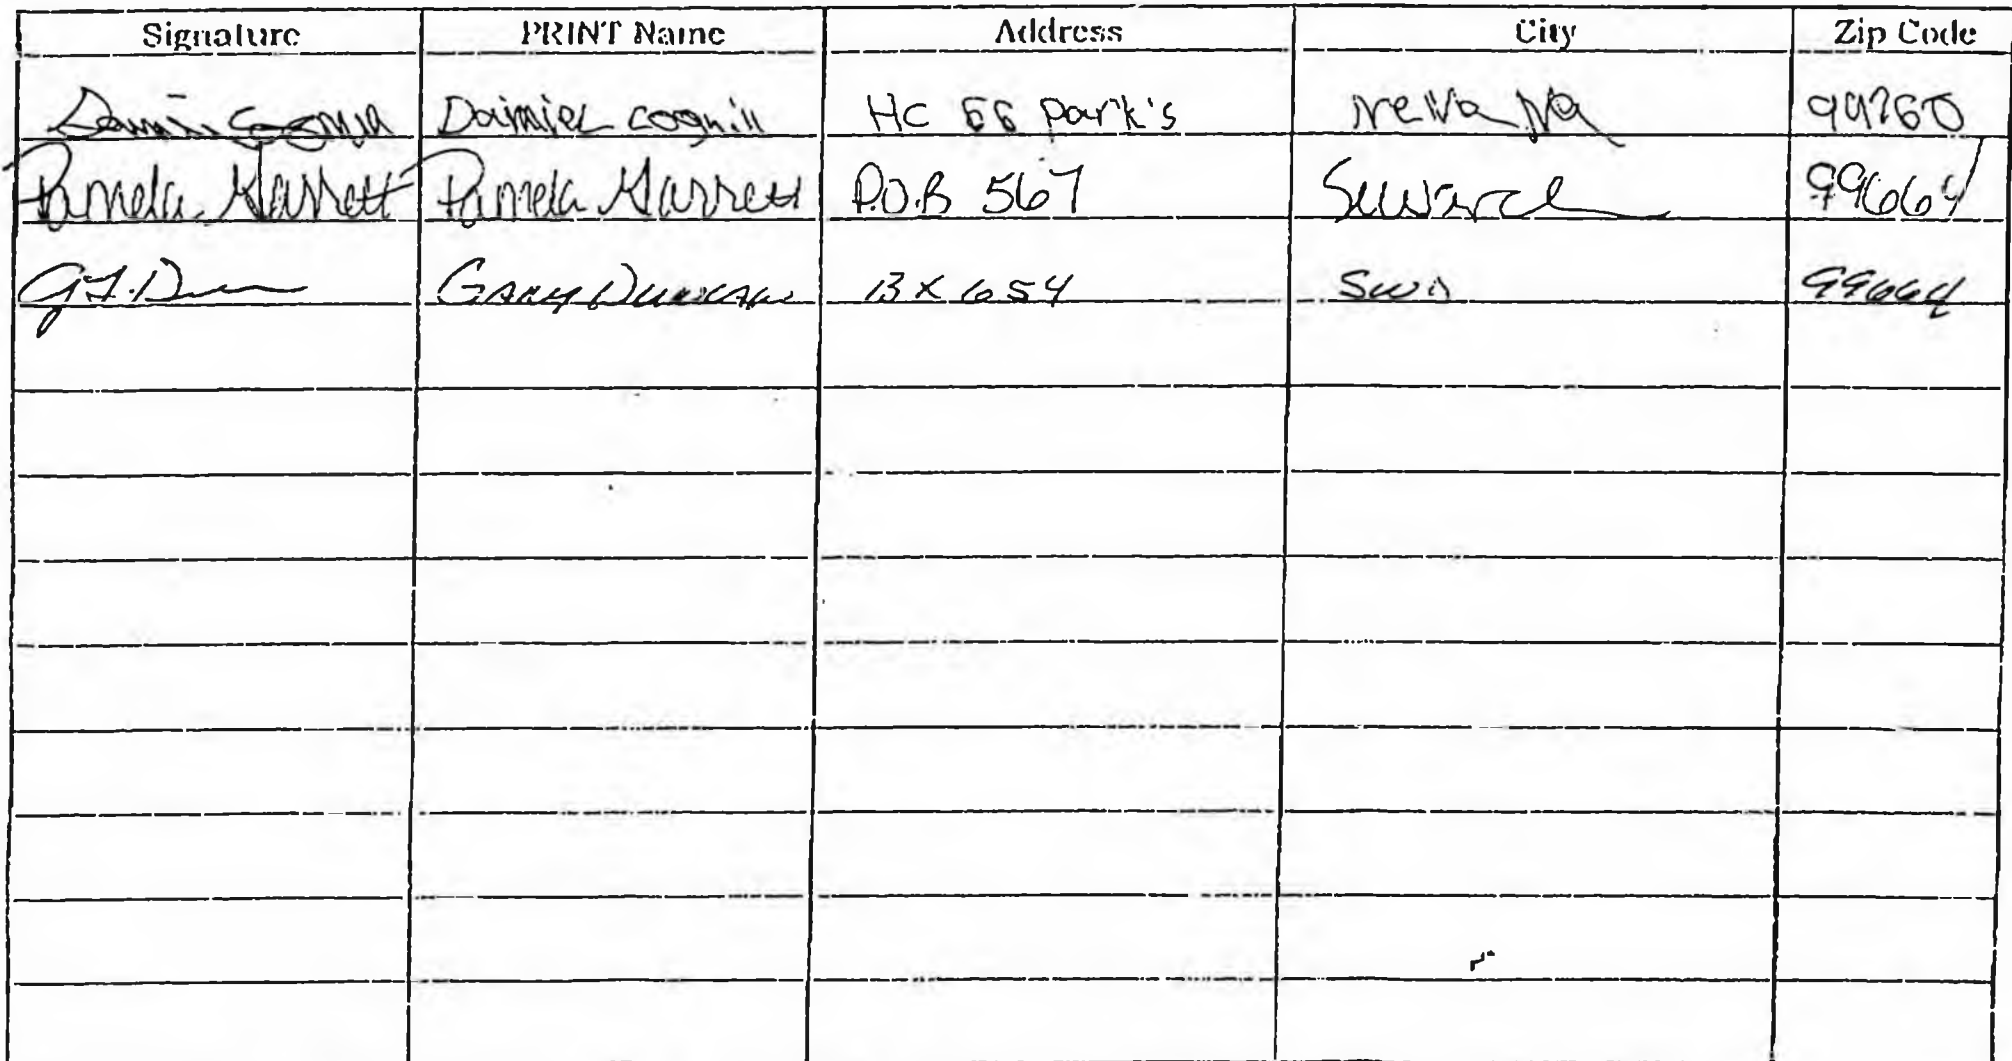 Signature PRINT Name Address City Zip Code
Daimiel Cognill HC 66 Park's 99760
Pamela Garrett Pamela Garrett P.O.B 567 Seward 99664
G.F. Dun Gary Duncan BX 654 SWD 99664